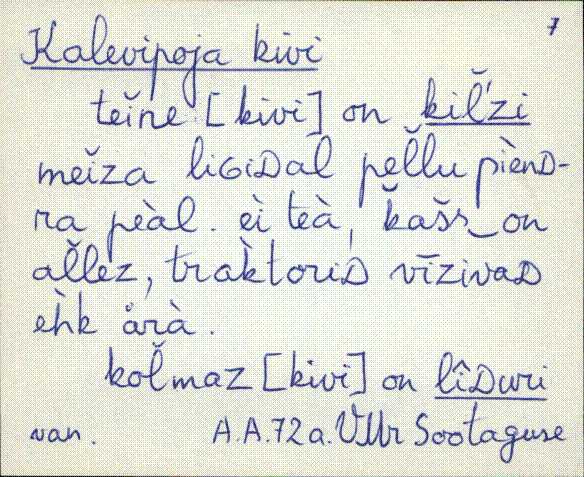 7
Kalevipoja kivi
teĭne [kivi] on kil̆'zi
meĭza liGiDal pel̆lu pìènD-
ra pèàl. eì teà, k̆ašs‿on
al̆lez, trak̀toriD vīzivaD
eh̀k årà.
kol̆maz [kivi] on lîDuri
van. A.A.72 a. VMr Sootaguse